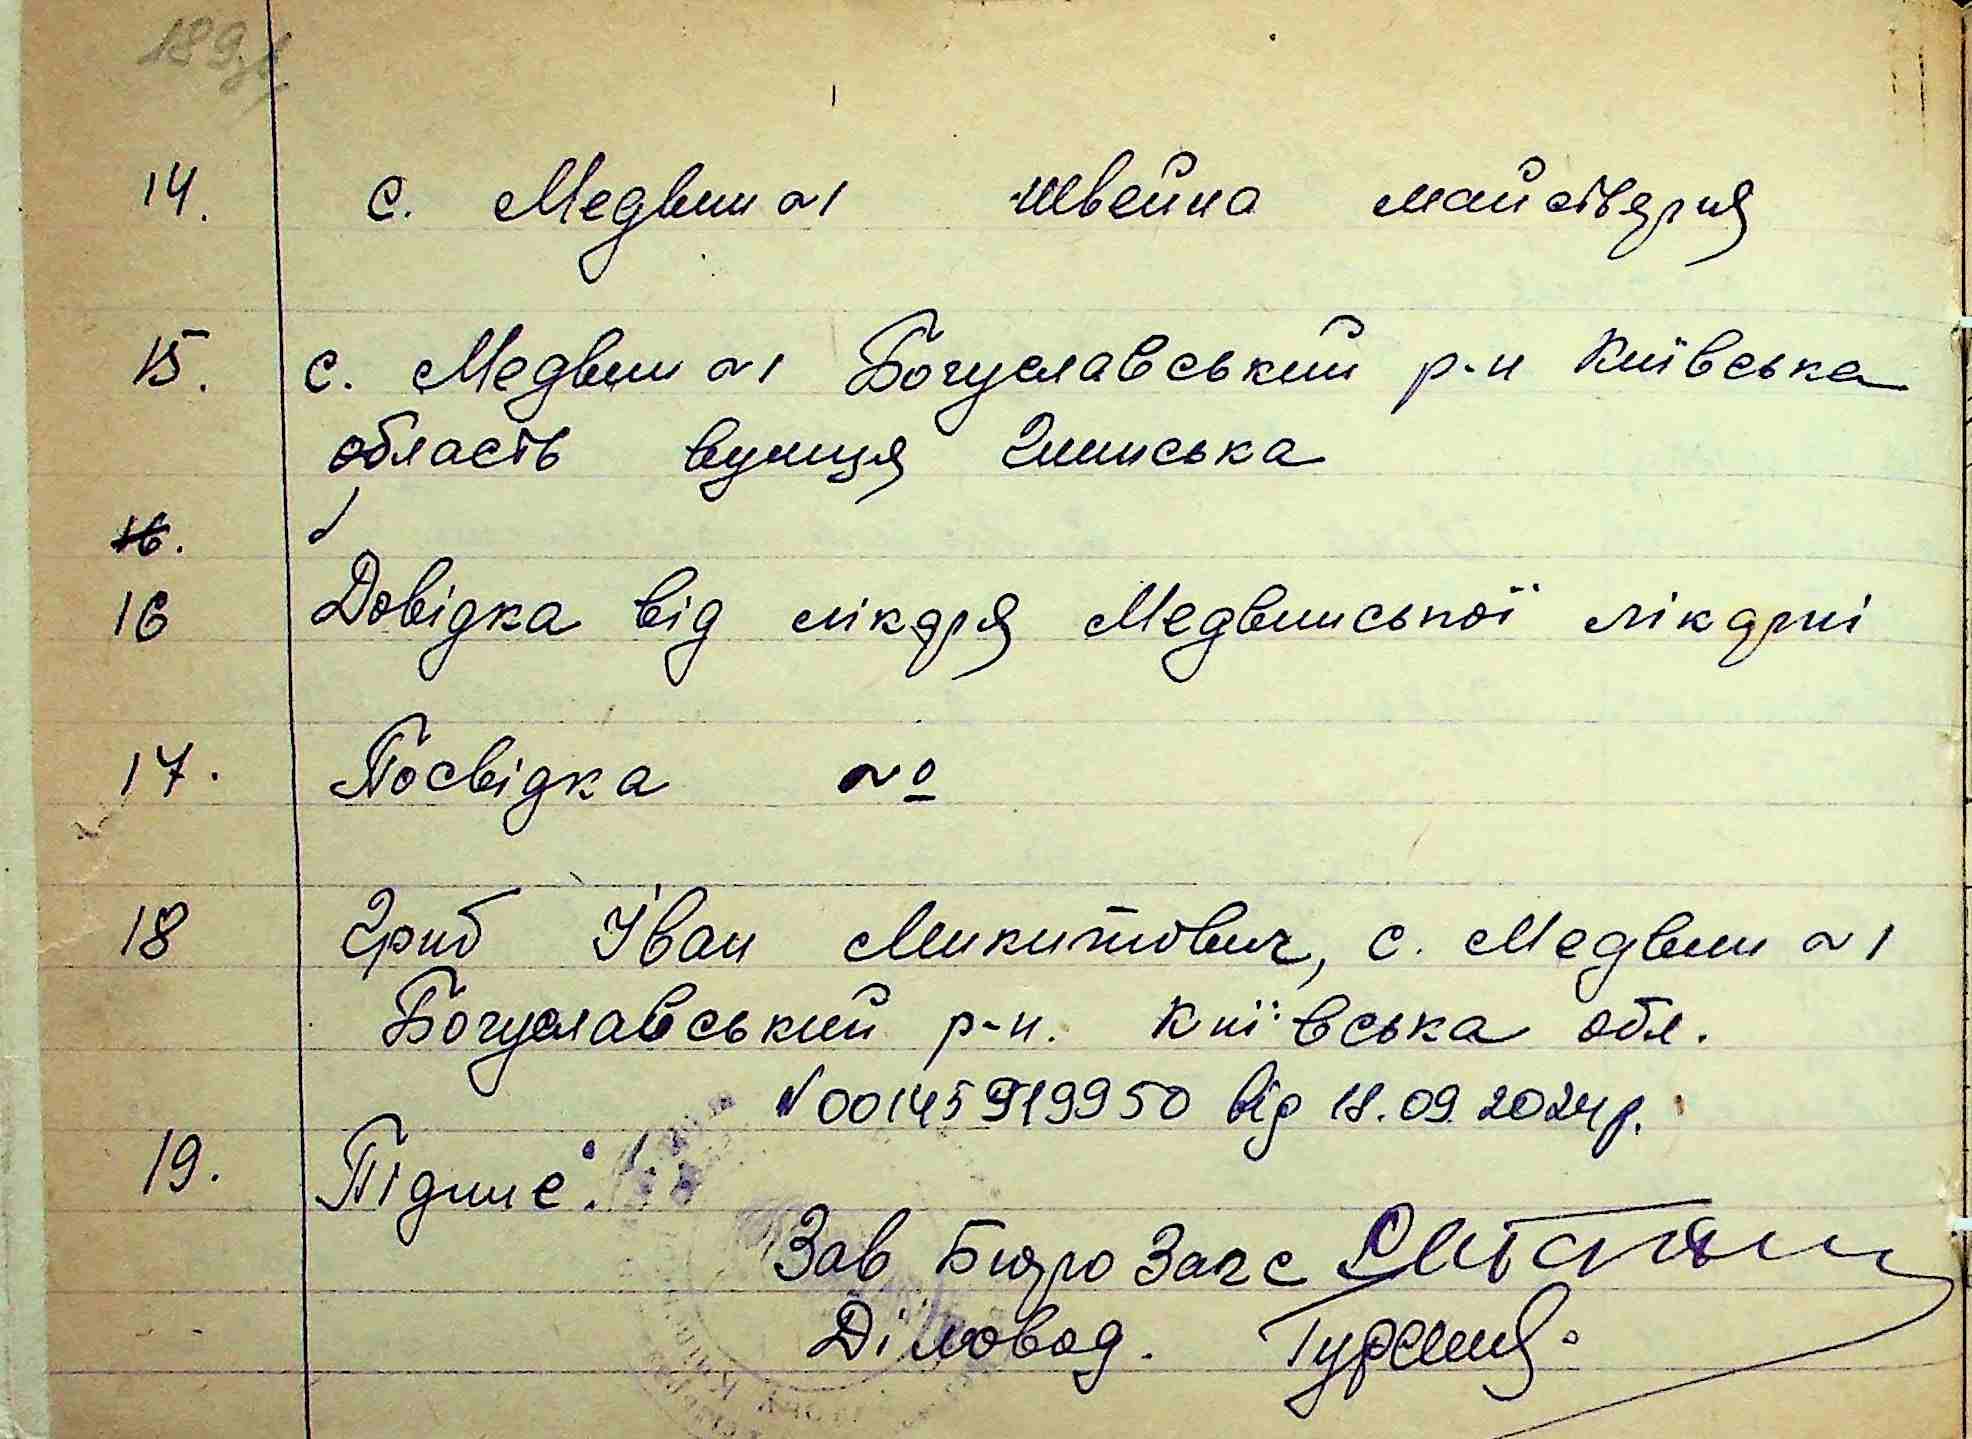 189зв
14. с. Медвин №1 швейна майстерня
15. с. Медвин №1 Богуславський р-н Київська
область вулиця Глинська
16.
16 Довідка від лікаря Медвинської лікарні
17. Посвідка №
18 Гриб Іван Микитович, с. Медвин №1
Богуславський р-н. Київська обл.
№00145919950 від 18.09.2024р.
19. Підписі:
Зав Бюро Загс
Діловод.